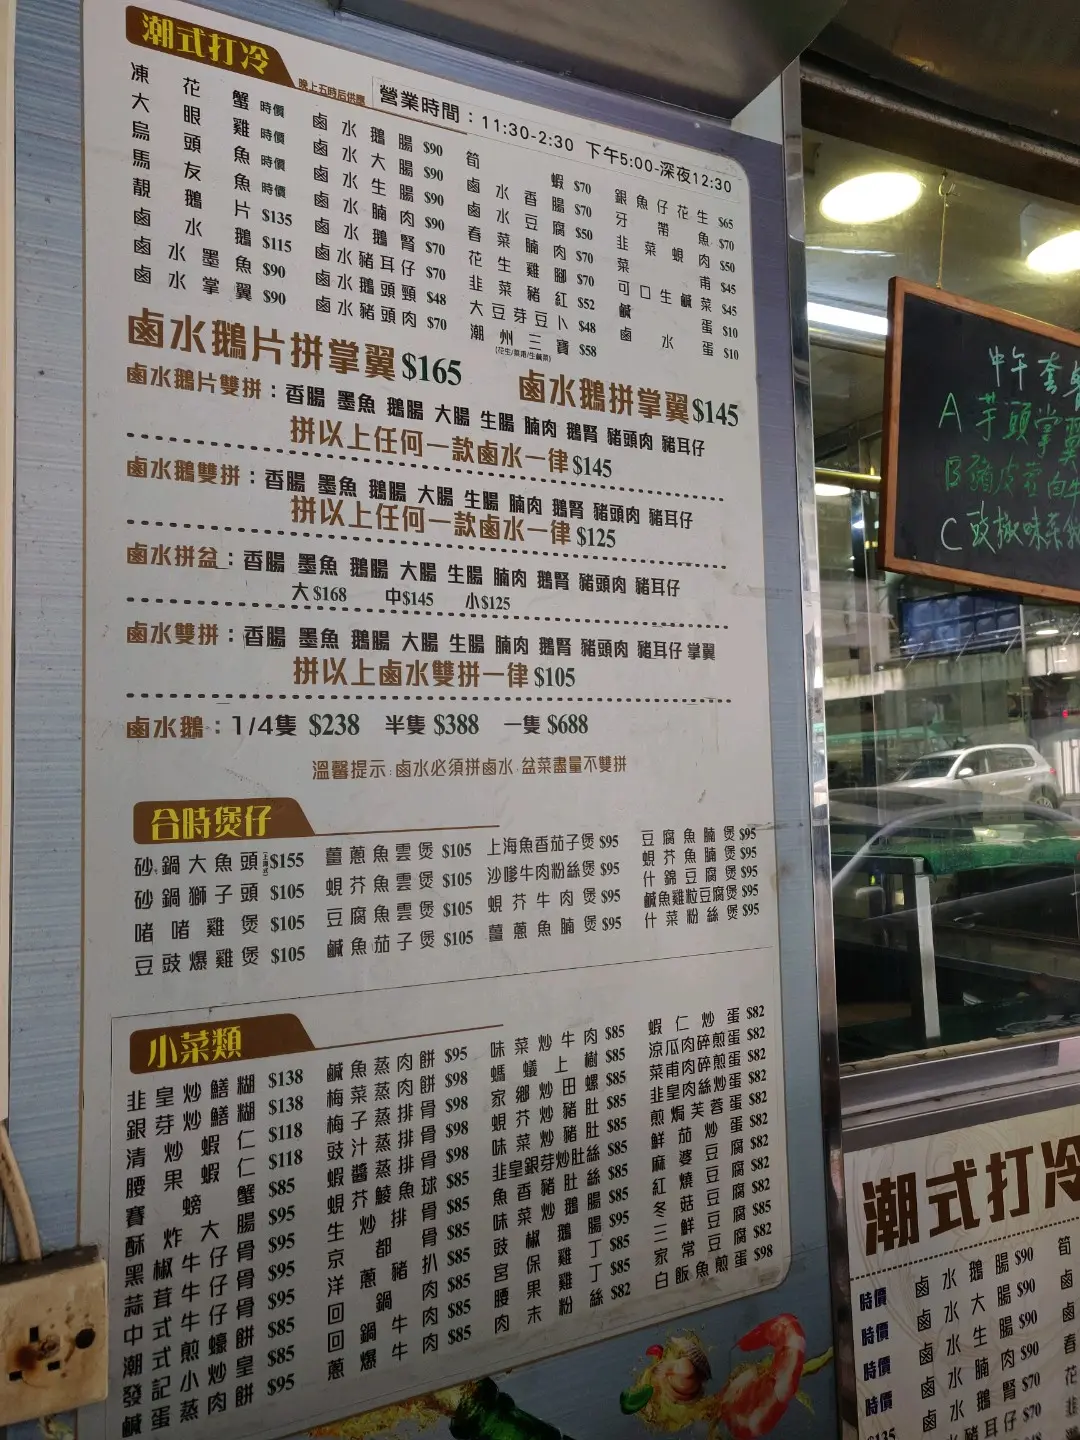 潮式打冷
晚上五時后供應
營業時間：11:30-2:30 下午5:00-深夜12:30
凍花蟹 時價
大眼雞 時價
烏頭魚 時價
馬友魚 時價
靚鵝片 $135
鹵水鵝 $115
鹵水墨魚 $90
鹵水掌翼 $90
鹵水鵝腸 $90
鹵水大腸 $90
鹵水生腸 $90
鹵水腩肉 $90
鹵水鵝腎 $70
鹵水豬耳仔 $70
鹵水鵝頭頸 $48
鹵水豬頭肉 $70
筍蝦 $70
鹵水香腸 $70
鹵水豆腐 $50
春菜腩肉 $70
花生雞腳 $70
韭菜豬紅 $52
大豆芽豆卜 $48
潮州三寶 $58
(花生/菜甫/生鹹菜)
銀魚仔花生 $65
牙帶魚 $70
韭菜蜆肉 $50
菜甫 $45
可口生鹹菜 $45
鹹蛋 $10
鹵水蛋 $10
鹵水鵝片拼掌翼 $165
鹵水鵝拼掌翼 $145
鹵水鵝片雙拼：香腸 墨魚 鵝腸 大腸 生腸 腩肉 鵝腎 豬頭肉 豬耳仔
拼以上任何一款鹵水一律 $145
鹵水鵝雙拼：香腸 墨魚 鵝腸 大腸 生腸 腩肉 鵝腎 豬頭肉 豬耳仔
拼以上任何一款鹵水一律 $125
鹵水拼盆：香腸 墨魚 鵝腸 大腸 生腸 腩肉 鵝腎 豬頭肉 豬耳仔
大 $168 中 $145 小 $125
鹵水雙拼：香腸 墨魚 鵝腸 大腸 生腸 腩肉 鵝腎 豬頭肉 豬耳仔 掌翼
拼以上鹵水雙拼一律 $105
鹵水鵝：1/4隻 $238 半隻 $388 一隻 $688
溫馨提示:鹵水必須拼鹵水,盆菜盡量不雙拼
合時煲仔
砂鍋大魚頭 $155
砂鍋獅子頭 $105
啫啫雞煲 $105
豆豉爆雞煲 $105
薑蔥魚雲煲 $105
蜆芥魚雲煲 $105
豆腐魚雲煲 $105
鹹魚茄子煲 $105
上海魚香茄子煲 $95
沙嗲牛肉粉絲煲 $95
蜆芥牛肉煲 $95
薑蔥魚腩煲 $95
豆腐魚腩煲 $95
蜆芥魚腩煲 $95
什錦豆腐煲 $95
鹹魚雞粒豆腐煲 $95
什菜粉絲煲 $95
小菜類
韭皇炒鱔糊 $138
銀芽炒鱔糊 $138
清炒蝦仁 $118
腰果蝦仁 $118
賽螃蟹 $85
酥炸大腸 $95
黑椒牛仔骨 $95
蒜茸牛仔骨 $95
中式牛仔骨 $95
潮式煎蠔餅 $85
發記小炒皇 $85
鹹蛋蒸肉餅 $95
鹹魚蒸肉餅 $95
梅菜蒸肉餅 $98
梅子蒸排骨 $98
豉汁蒸排骨 $98
蝦醬蒸排骨 $98
蜆芥鯪魚球 $85
生炒排骨 $85
京都骨 $85
洋蔥豬扒 $85
回鍋肉 $85
回鍋牛肉 $85
蔥爆牛肉 $85
味菜炒牛肉 $85
螞蟻上樹 $85
家鄉炒田螺 $85
蜆芥炒豬肚 $85
味菜炒豬肚 $85
韭皇銀芽炒肚絲 $85
魚香豬肚絲 $85
味菜炒鵝腸 $85
豉椒鵝腸 $95
宮保雞丁 $85
腰果雞丁 $85
肉末粉絲 $82
蝦仁炒蛋 $82
涼瓜肉碎煎蛋 $82
菜甫肉碎煎蛋 $82
韭皇肉絲炒蛋 $82
煎焗芙蓉蛋 $82
鮮茄炒蛋 $82
麻婆豆腐 $82
紅燒豆腐 $82
冬菇豆腐 $82
三鮮豆腐 $85
家常豆腐 $82
白飯魚煎蛋 $98
中午套
A 芋頭掌翼
B 豬皮
C 豉椒味菜
潮式打冷
時價
時價
時價
時價
$135
鹵水鵝腸 $90
鹵水大腸 $90
鹵水生腸 $90
鹵水腩肉 $90
鹵水鵝腎 $70
豬耳仔 $70
筍
鹵
鹵
春
花
韭